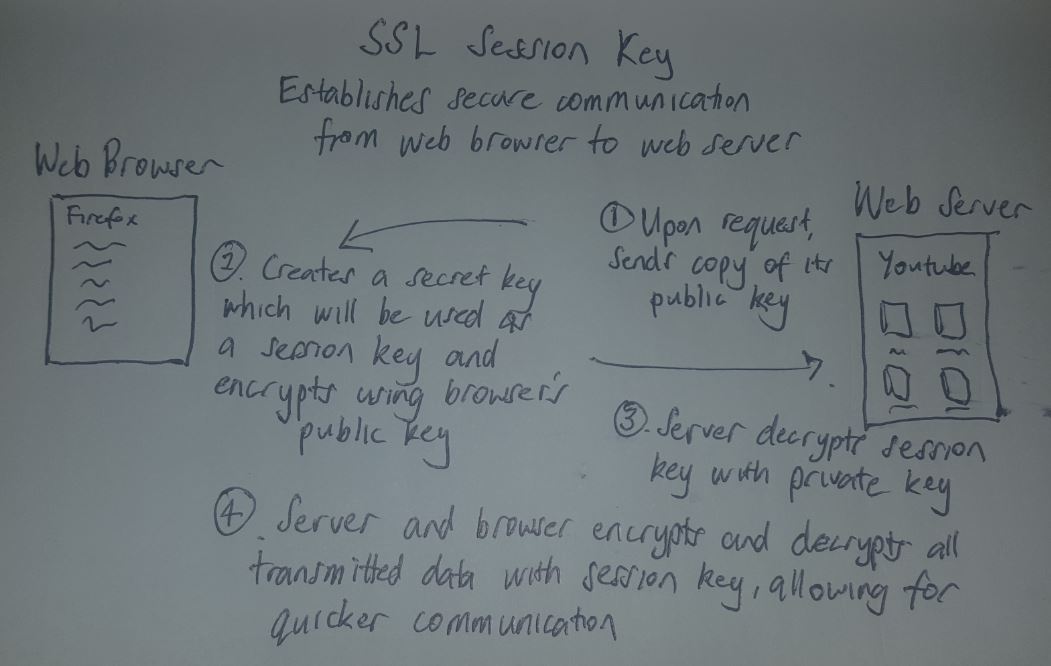 SSL Session Key
Establishes secure communication
from web browser to web server
Web Browser
Firefox
Web Server
Youtube
① Upon request,
sends copy of its
public key
②. Creates a secret key
which will be used as
a session key and
encrypts using browser's
public key
③. Server decrypts session
key with private key
④. Server and browser encrypts and decrypts all
transmitted data with session key, allowing for
quicker communication